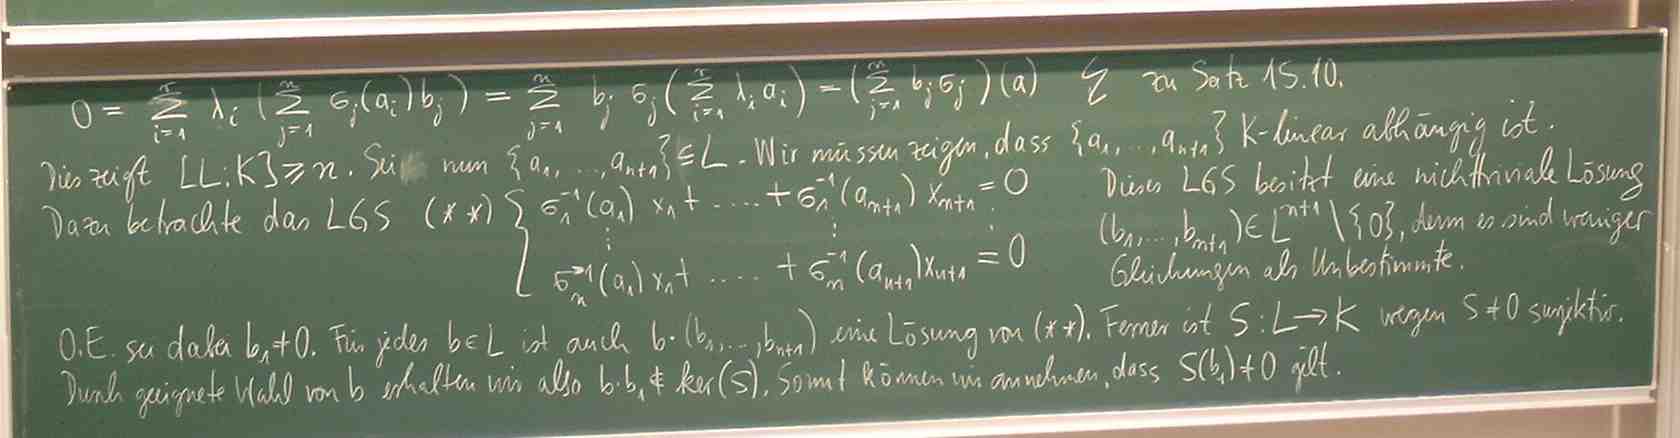 0 = \sum_{i=1}^{r} λ_i (\sum_{j=1}^{n} σ_j(a_i) b_j) = \sum_{j=1}^{n} b_j σ_j (\sum_{i=1}^{r} λ_i a_i) = (\sum_{j=1}^{n} b_j σ_j)(a) ↯ zu Satz 15.10.
Dies zeigt [L:K] ≥ n. Sei nun {a_1, ..., a_{n+1}} ⊆ L. Wir müssen zeigen, dass {a_1, ..., a_{n+1}} K-linear abhängig ist.
Dazu betrachte das LGS (**) { σ_1^{-1}(a_1) x_1 + .... + σ_1^{-1}(a_{n+1}) x_{n+1} = 0
⋮ ⋮ ⋮
σ_n^{-1}(a_1) x_1 + .... + σ_n^{-1}(a_{n+1}) x_{n+1} = 0
Dieses LGS besitzt eine nichttriviale Lösung
(b_1, ..., b_{n+1}) ∈ L^{n+1} \ {0}, denn es sind weniger
Gleichungen als Unbestimmte.
O.E. sei dabei b_1 ≠ 0. Für jedes b ∈ L ist auch b·(b_1, ..., b_{n+1}) eine Lösung von (**). Ferner ist S: L → K wegen S ≠ 0 surjektiv.
Durch geeignete Wahl von b erhalten wir also b·b_1 ∉ ker(S). Somit können wir annehmen, dass S(b_1) ≠ 0 gilt.